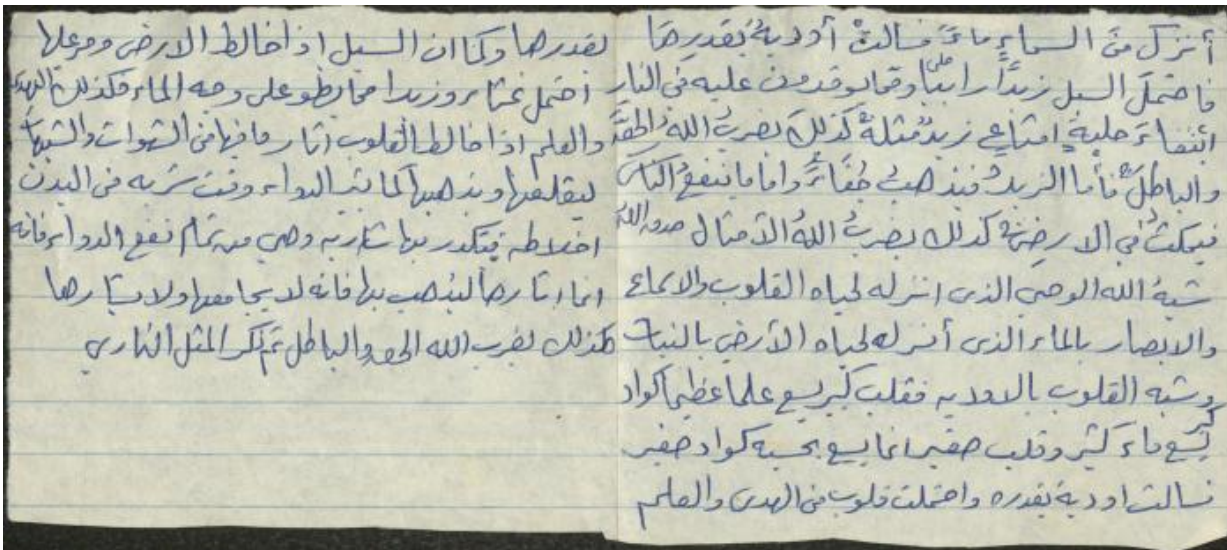 أنزل من السماءِ ماءً فسالتْ أوديةٌ بقدرها
فاحتمل السيل زبدًا رابيًا ومما يوقدون عليه في النار
ابتغاءَ حليةٍ او متاعٍ زبدٌ مثلهُ كذلك يضربُ اللهُ الحقَّ
والباطلَ فأما الزبدُ فيذهبُ جُفَاءً واما ما ينفعُ الناسَ
فيمكثُ في الارضِ كذلك يضربُ اللهُ الأمثال صدق الله
شبهُ الله الوحي الذي انزله لحياه القلوب والاسماع
والابصار بالماء الذي أنزله لحياه الأرض بالنبات
وشبه القلوب بالاوديه فقلب كبير يسع علما عظيما كواد
كبير يسع ماء كثير وقلب صغير انما يسع بحسبه كواد صغير
فسالت اودية بقدره واحتملت قلوب من الهدى والعلم
بقدرها وكما ان السيل اذا خالط الارض ومر عليها
احتمل غثاء وزبدا مما يطفو على وجه الماء فكذلك الهدى
والعلم اذا خالط القلوب اثار ما فيها من الشهوات والشبهات
ليقلعها ويذهبها كما يثير الدواء وقت شربه في البدن
اخلاطه فيتكدر بها شاربه وهي من تمام نفع الدواء فانه
انما اثارها ليذهب بها فانه لا يجامعها ولا يشاركها
كذلك يضرب الله الحق والباطل ثم ذكر المثل الناري